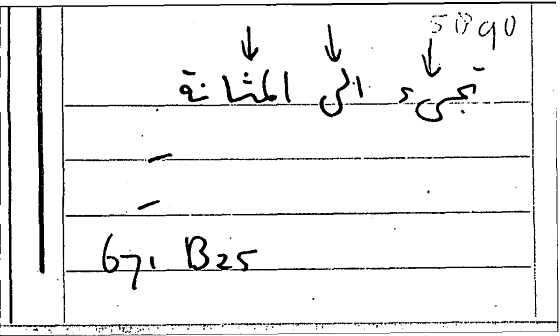 5890
تجىء الى المثانة
671 B25